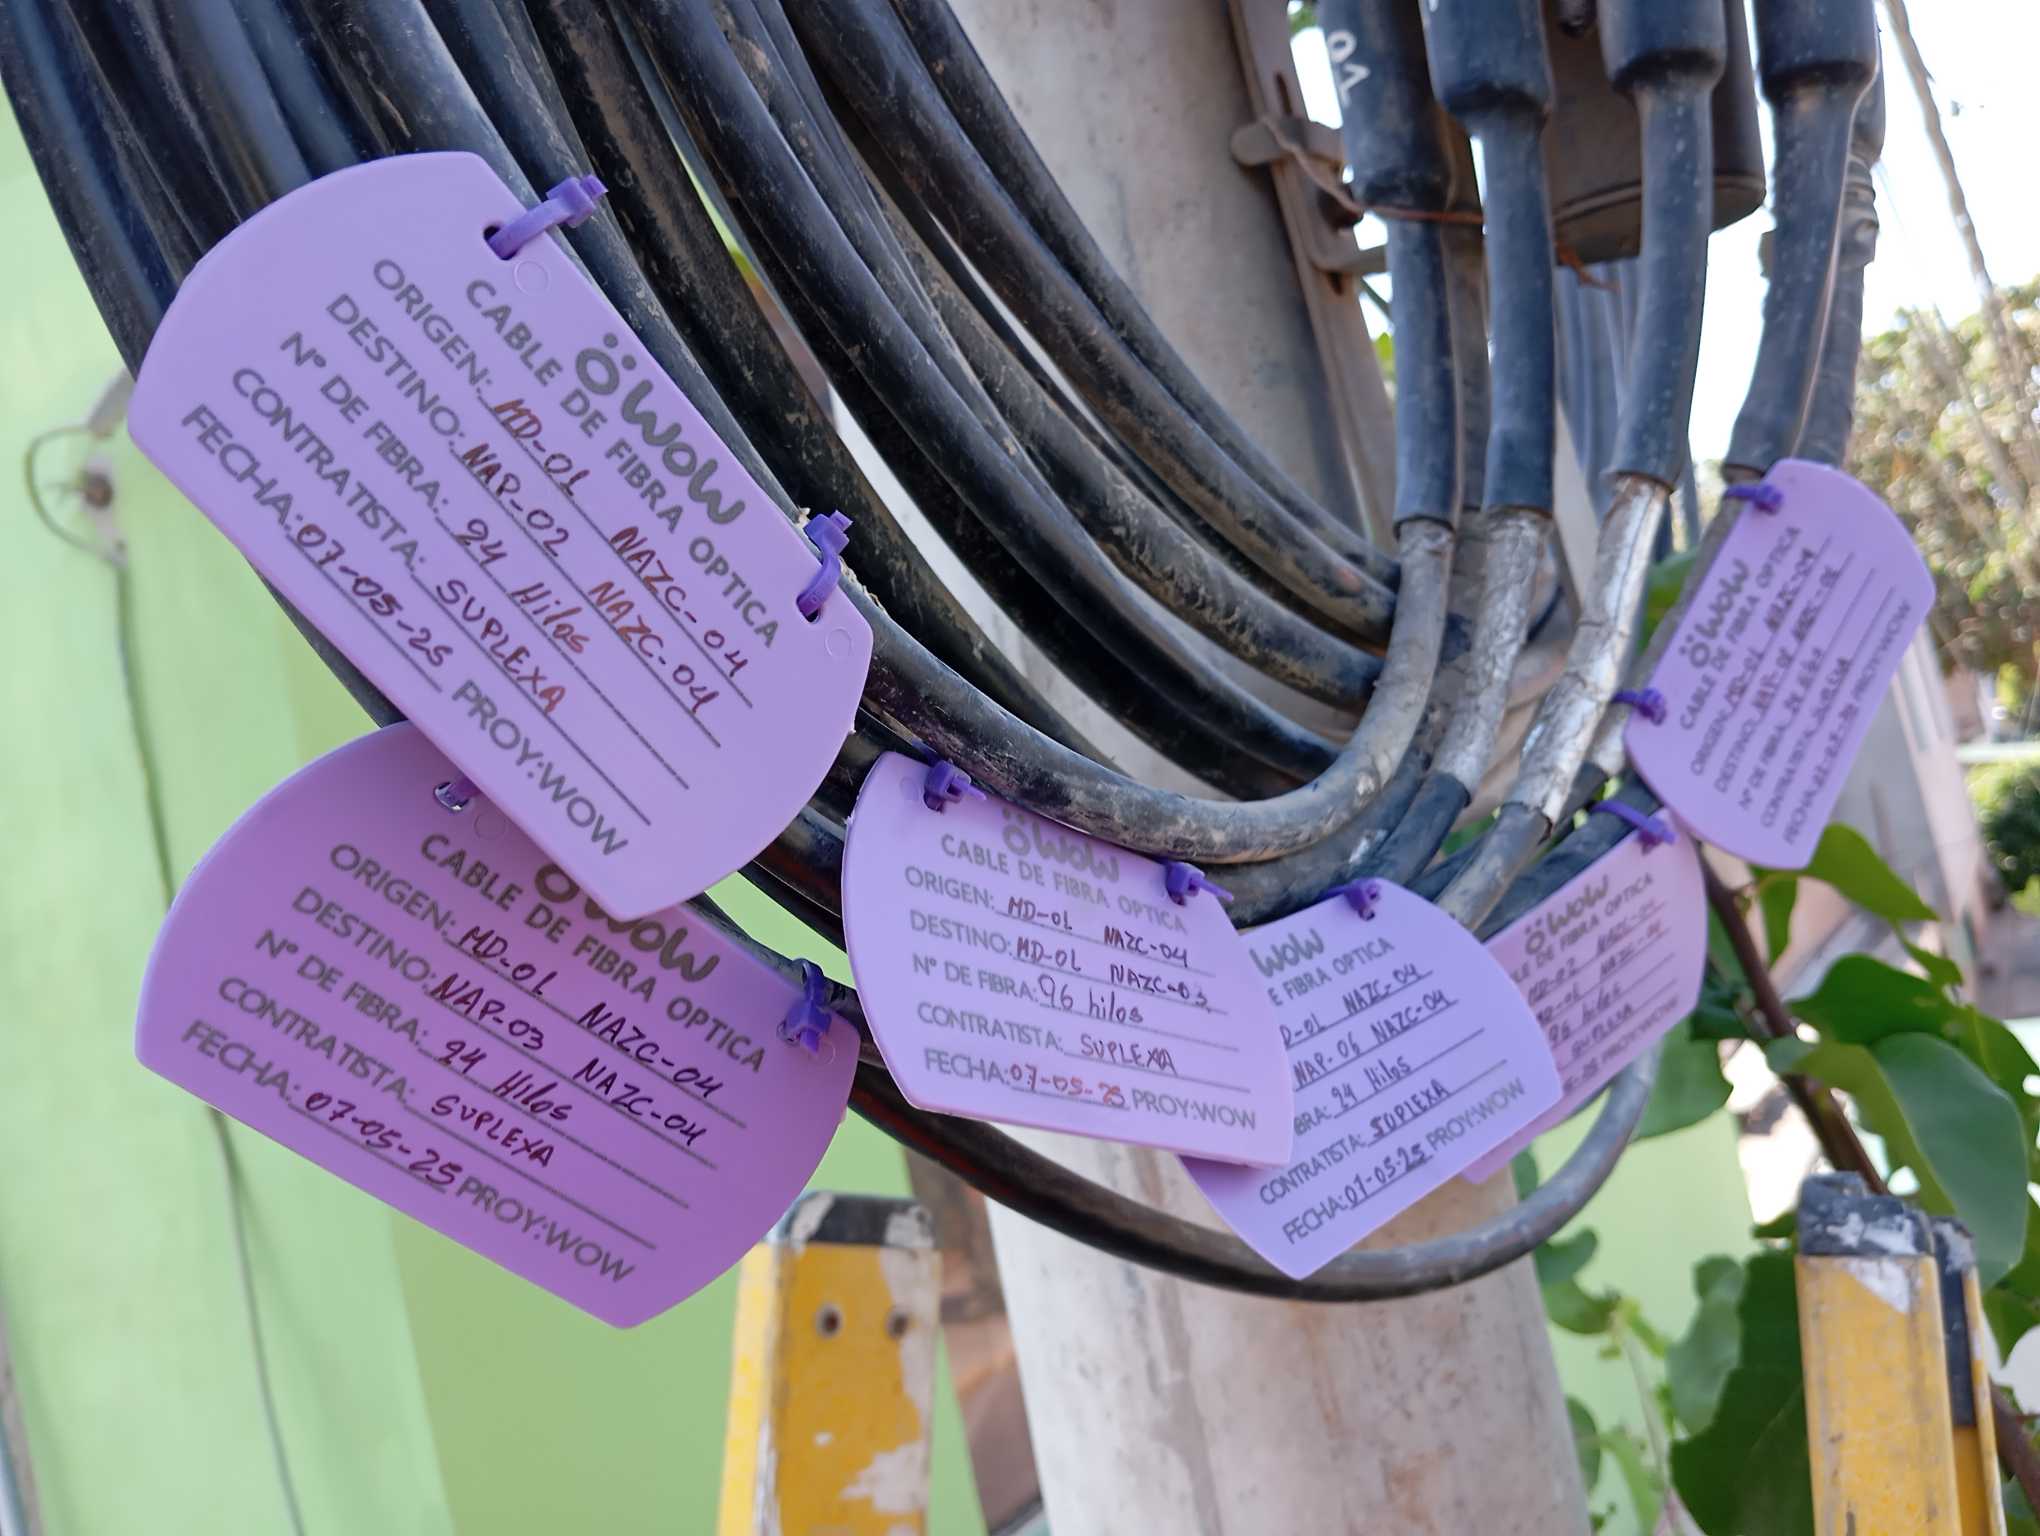 01
WOW
CABLE DE FIBRA OPTICA
ORIGEN: MD-01 NAZC-04
DESTINO: NAP-02 NAZC-04
N° DE FIBRA: 24 Hilos
CONTRATISTA: SUPLEXA
FECHA: 07-05-25 PROY:WOW
WOW
CABLE DE FIBRA OPTICA
ORIGEN: MD-01 NAZC-04
DESTINO: NAP-03 NAZC-04
N° DE FIBRA: 24 Hilos
CONTRATISTA: SUPLEXA
FECHA: 07-05-25 PROY:WOW
WOW
CABLE DE FIBRA OPTICA
ORIGEN: MD-01 NAZC-04
DESTINO: MD-01 NAZC-03
N° DE FIBRA: 96 hilos
CONTRATISTA: SUPLEXA
FECHA: 07-05-25 PROY:WOW
WOW
E FIBRA OPTICA
D-01 NAZC-04
NAP-06 NAZC-04
BRA: 24 Hilos
CONTRATISTA: SUPLEXA
FECHA: 07-05-25 PROY:WOW
WOW
DE FIBRA OPTICA
96 hilos
SUPLEXA
PROY:WOW
WOW
CABLE DE FIBRA OPTICA
ORIGEN:
DESTINO:
N° DE FIBRA:
CONTRATISTA:
FECHA: PROY:WOW